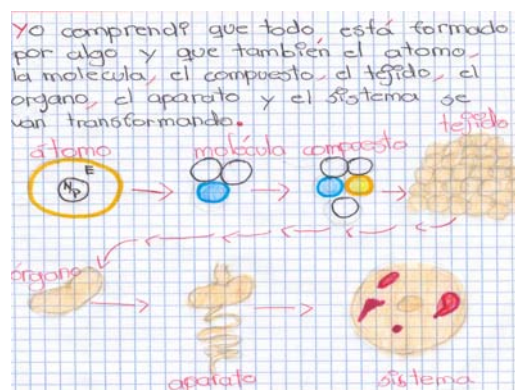 Yo comprendí que todo, está formado
por algo y que también el atomo,
la molecula, el compuesto, el tejido, el
organo, el aparato y el sistema se
van transformando.
tejido
átomo molécula compuesto
E
N P
órgano
aparato sistema